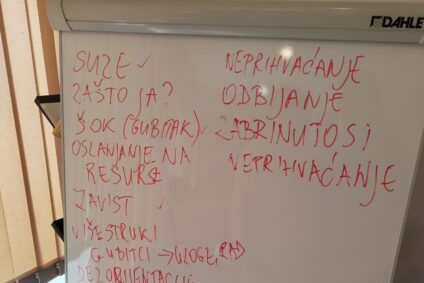 DAHLE
SUZE ✓
ZAŠTO JA?
ŠOK (GUBITAK) ✓
OSLANJANJE NA
RESURSE
ZAVIST ✓
VIŠESTRUKI
GUBITCI → ULOGE, RAD
NEPRIHVAĆANJE
ODBIJANJE
ZABRINUTOST I
NEPRIHVAĆANJE